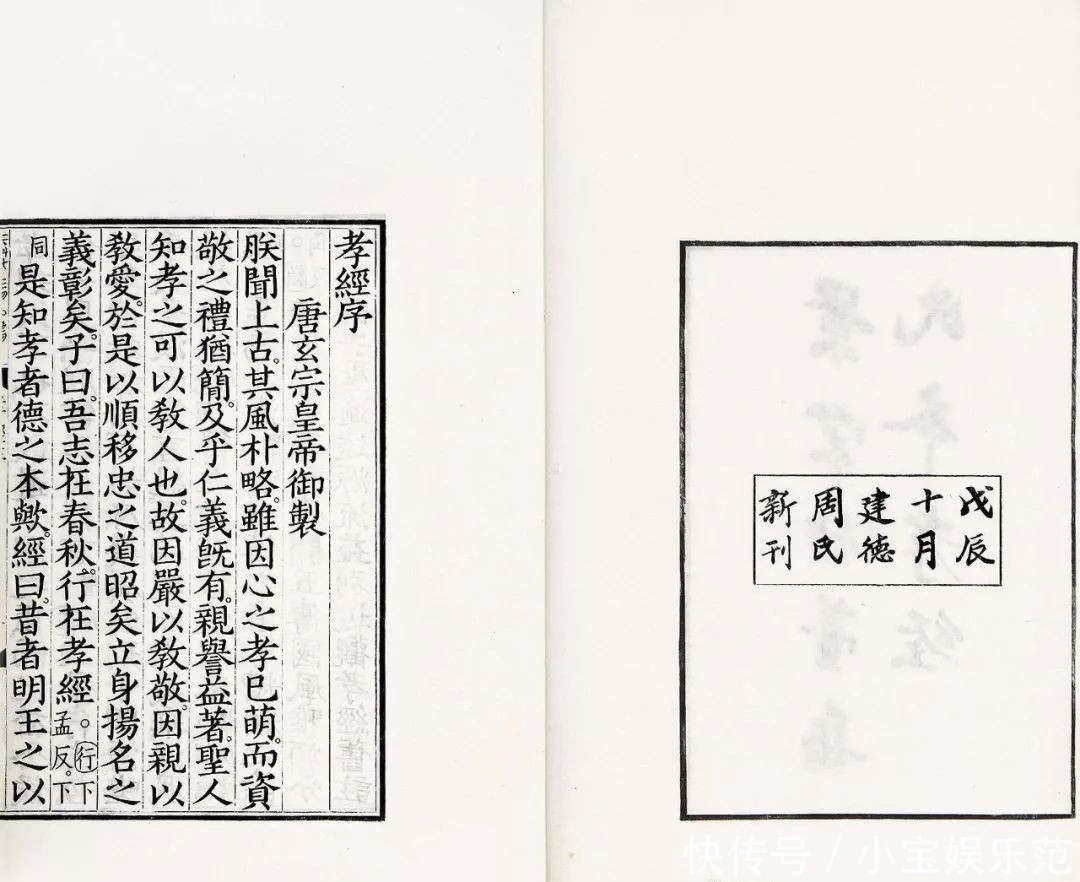 戊辰
十月
建德
周氏
新刊
孝經序
唐玄宗皇帝御製
朕聞上古。其風朴略。雖因心之孝已萌。而資
敬之禮猶簡。及乎仁義旣有。親譽益著。聖人
知孝之可以敎人也。故因嚴以敎敬。因親以
敎愛。於是以順移忠之道昭矣立身揚名之
義彰矣。子曰。吾志在春秋。行在孝經。。行下
孟反。下
同是知孝者德之本歟。經曰。昔者明王之以
快传号/小宝娱乐范